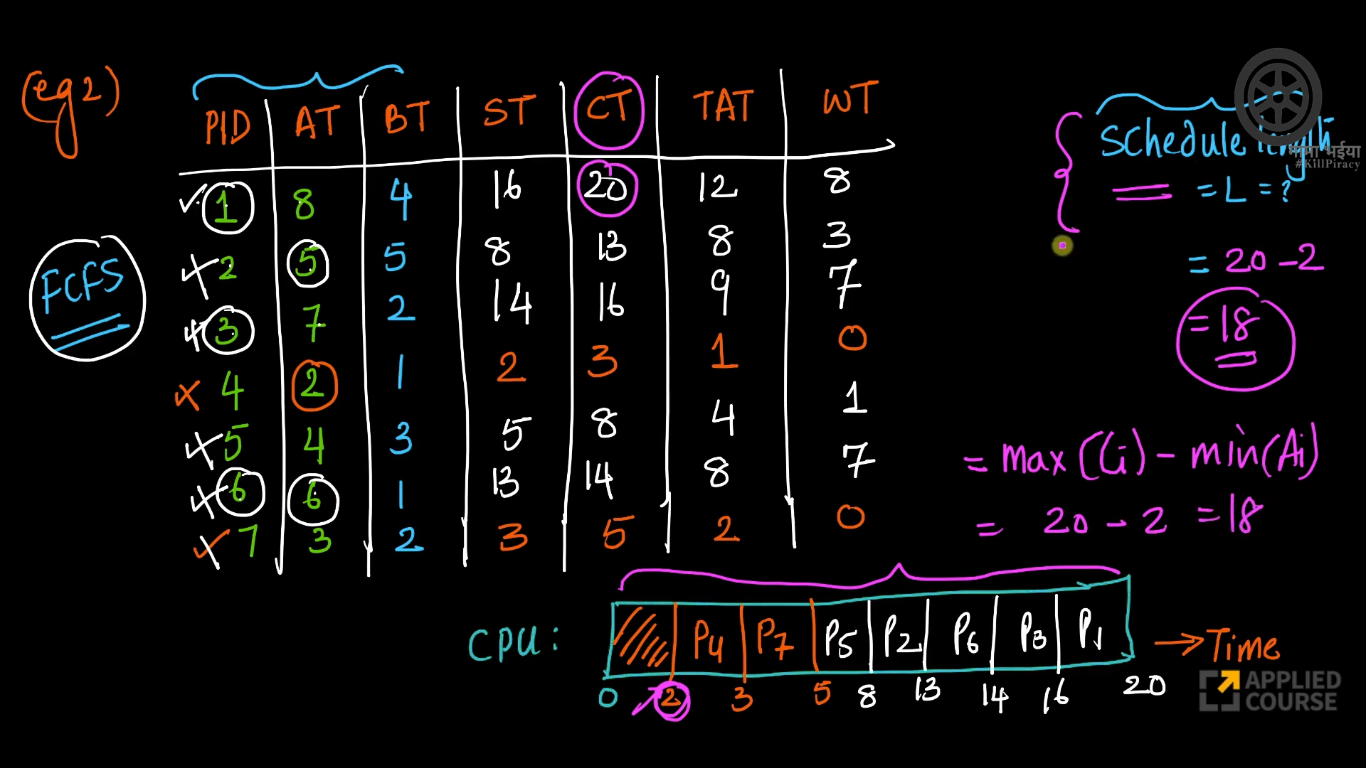 (eg2)
PID AT BT ST CT TAT WT
1 8 4 16 20 12 8
2 5 5 8 13 8 3
3 7 2 14 16 9 7
4 2 1 2 3 1 0
5 4 3 5 8 4 1
6 6 1 13 14 8 7
7 3 2 3 5 2 0
FCFS
Schedule length
= L = ?
= 20 - 2
= 18
= max(Ci) - min(Ai)
= 20 - 2 = 18
CPU: P4 P7 P5 P2 P6 P3 P1 → Time
0 2 3 5 8 13 14 16 20
भईया
#KillPiracy
APPLIED
COURSE